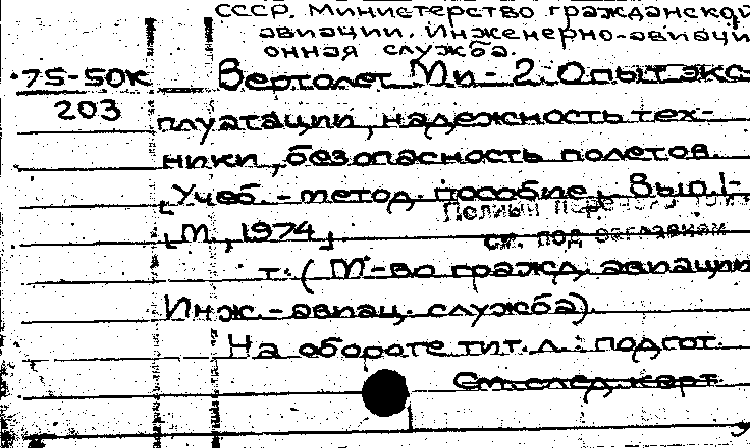 СССР. Министерство гражданской
авиации. Инженерно-авиаци
онная служба.
75-50к Вертолет Ми-2. Опыт экс-
203
плуатации, надежность тех-
ники, безопасность полетов.
[Учеб.-метод. пособие. Вып. 1-
[М., 1974].
Полный
см. под заглавием
т. (М-во гражд. авиации
Инж.-авиац. служба).
На обороте тит. л.: подгот.
См. след. карт